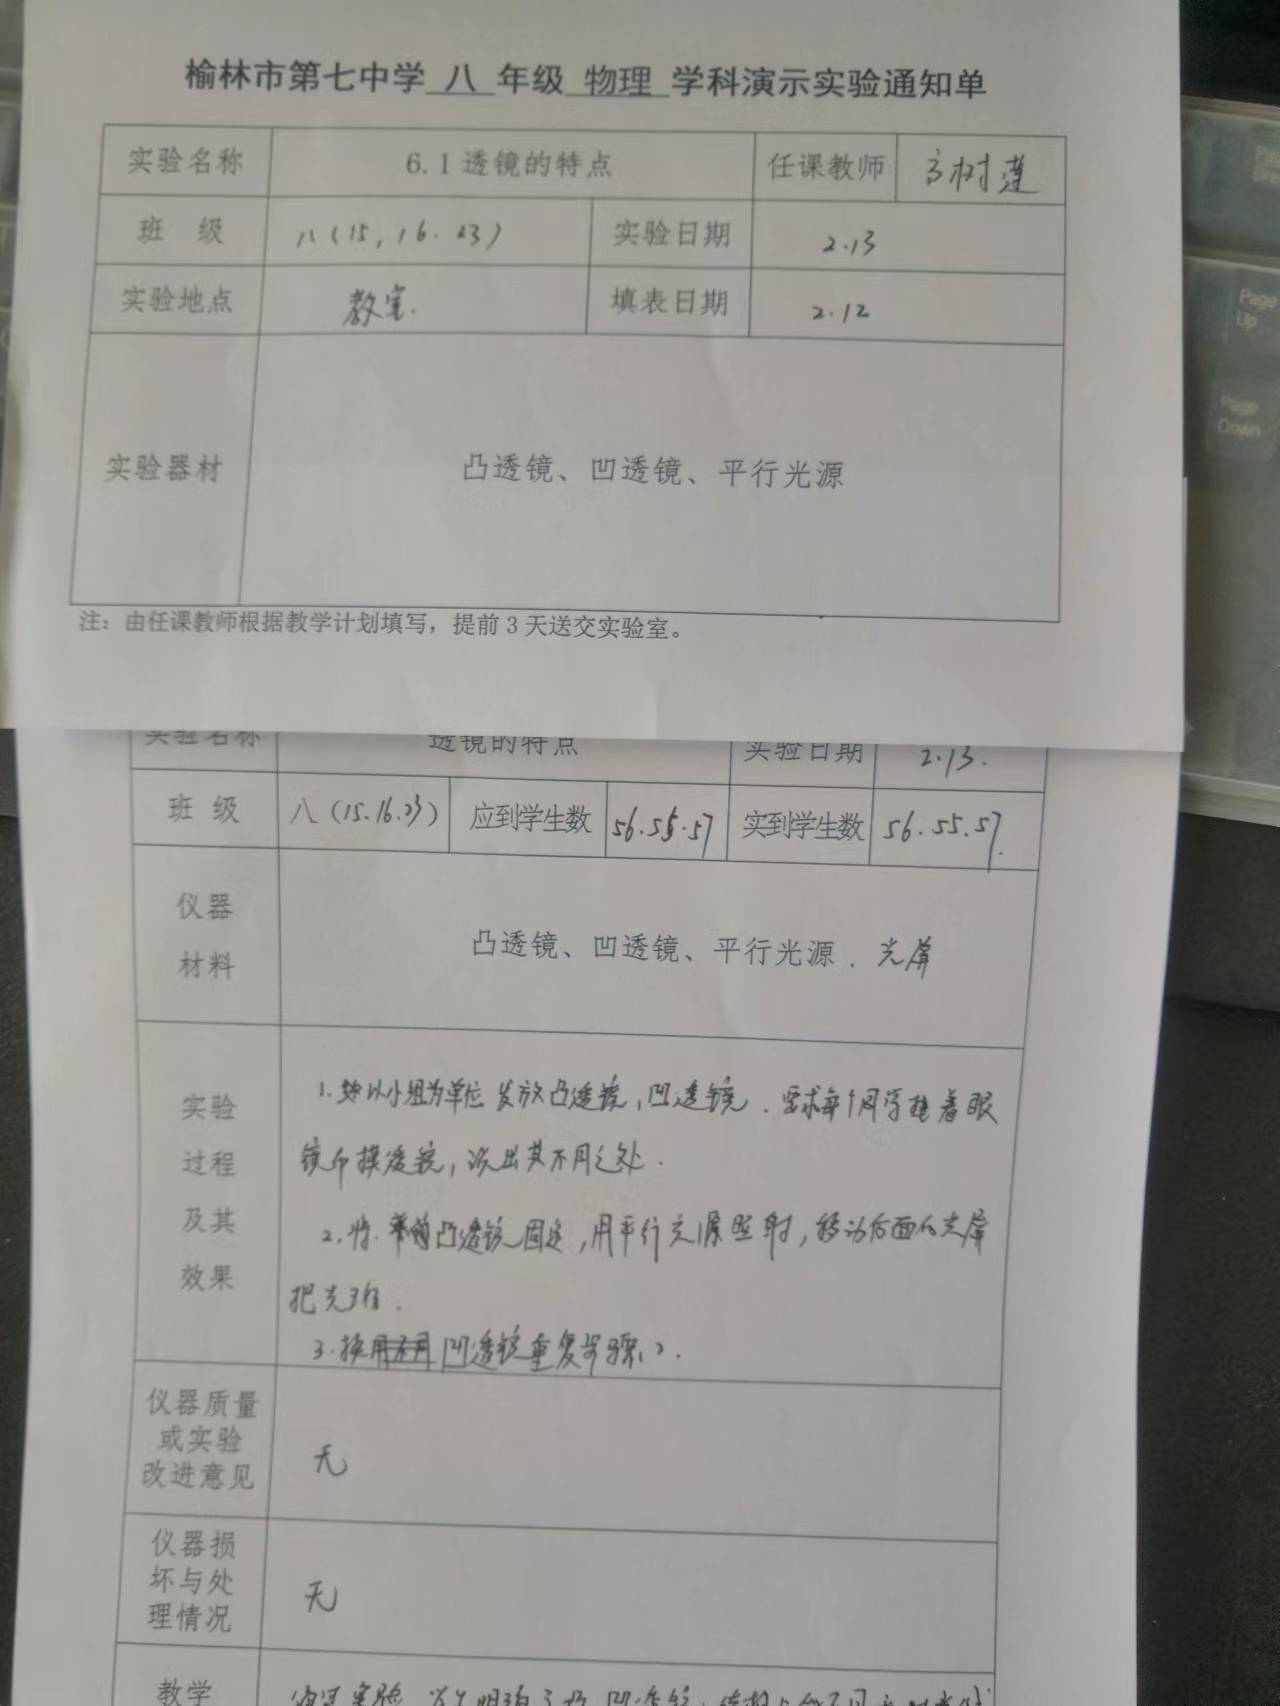 榆林市第七中学 八 年级 物理 学科演示实验通知单
实验名称 6.1透镜的特点 任课教师 高树莲
班 级 八(15,16.23) 实验日期 2.13
实验地点 教室. 填表日期 2.12
实验器材 凸透镜、凹透镜、平行光源
注：由任课教师根据教学计划填写，提前3天送交实验室。
实验名称 透镜的特点 实验日期 2.13.
班 级 八(15.16.23) 应到学生数 56.55.57 实到学生数 56.55.57.
仪器
材料
凸透镜、凹透镜、平行光源. 光屏
实验
过程
及其
效果
1. 以小组为单位发放凸透镜,凹透镜. 要求每个同学 着眼
镜 摸透镜, 说出其不同之处.
2.将 凸透镜固定,用平行光源照射,移动后面的光屏
把光
3.换用 凹透镜重复步骤
仪器质量
或实验
改进意见
无
仪器损
坏与处
理情况
无
教学
通过实验